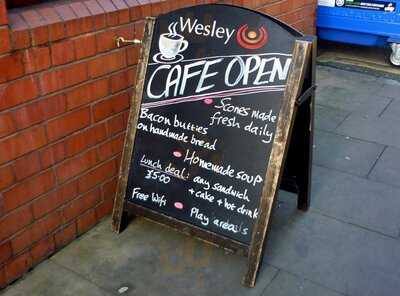 Wesley
CAFE OPEN
Scones made
fresh daily
Bacon butties
on handmade bread
Homemade soup
Lunch deal: any sandwich
£5.00 + cake + hot drink
Free Wifi
Play area